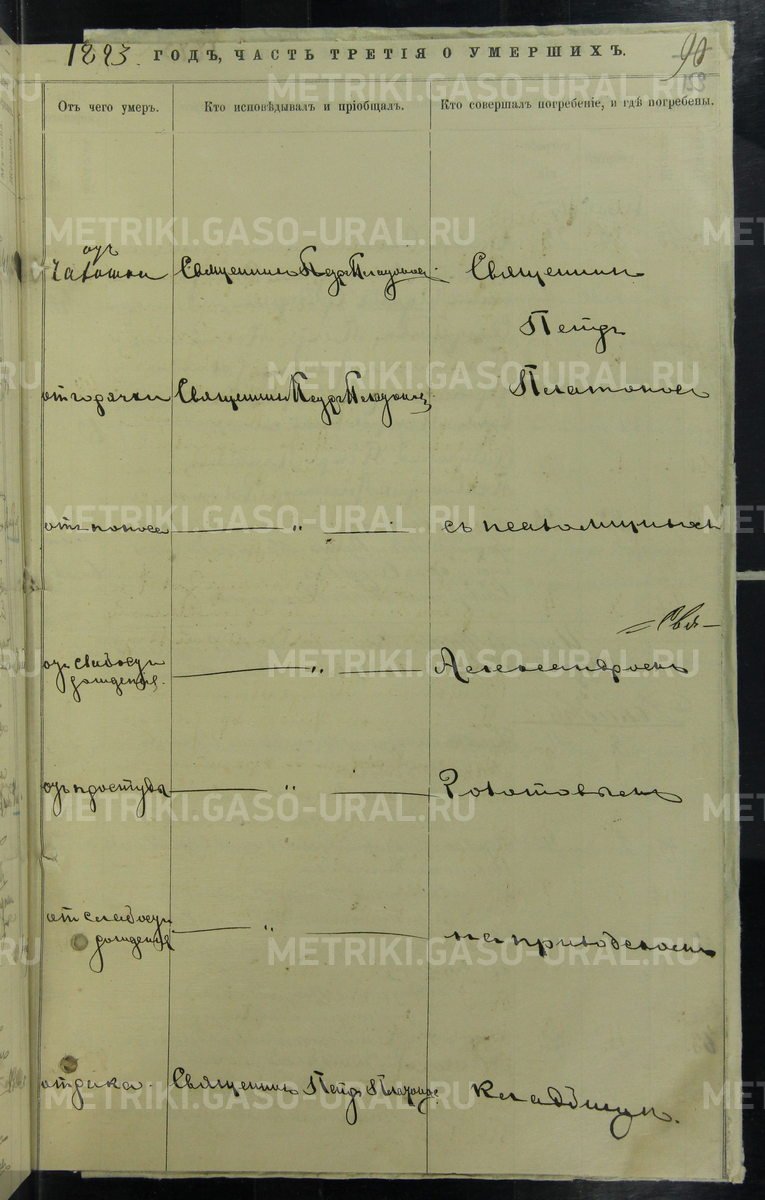 1893 ГОДЪ, ЧАСТЬ ТРЕТІЯ О УМЕРШИХЪ.
90
153
Отъ чего умеръ.
Кто исповѣдывалъ и пріобщалъ.
Кто совершалъ погребеніе, и гдѣ погребены.
отъ
чахотки
Священникъ Петръ Платоновъ
Священникъ
Петръ
Платоновъ
отъ горячки
Священникъ Петръ Платоновъ
отъ поноса
— „ —
съ псаломщикомъ
= Свя—
отъ слабости
рожденія.
— „ —
Александромъ
отъ простуды
— „ —
отъ слабости
рожденія
— „ —
на приходскомъ
отъ рака.
Священникъ Петръ Платоновъ
кладбищѣ.
METRIKI.GASO-URAL.RU